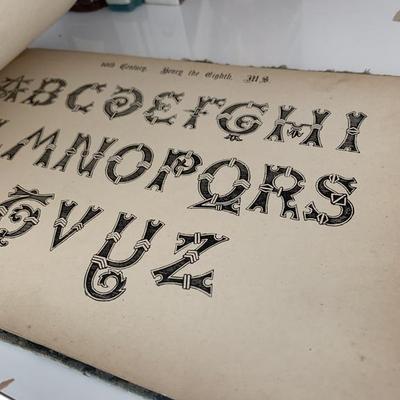 16th Century. Henry the Eighth. MS.
A B C D E F G H I
M N O P Q R S
V U Z